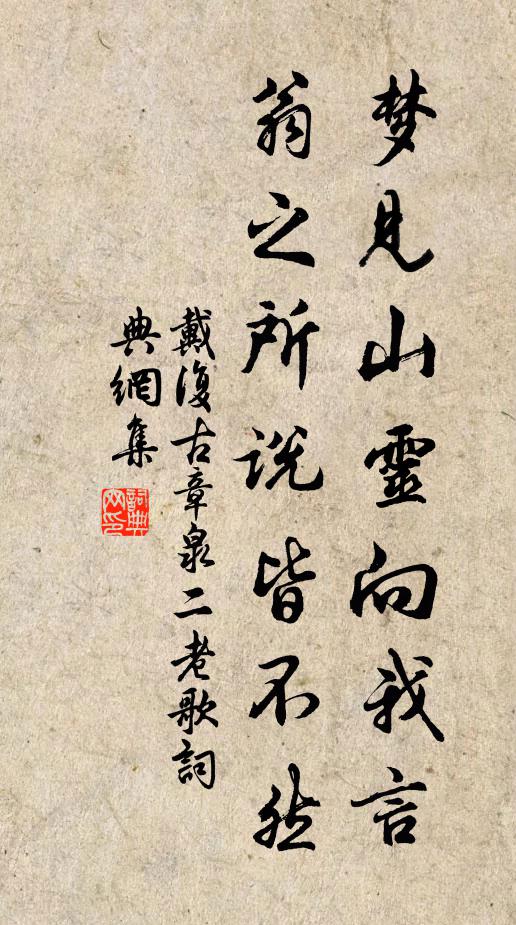 梦見山靈向我言
翁之所説皆不然
戴復古章泉二老歌詞
典網集
詞典網印